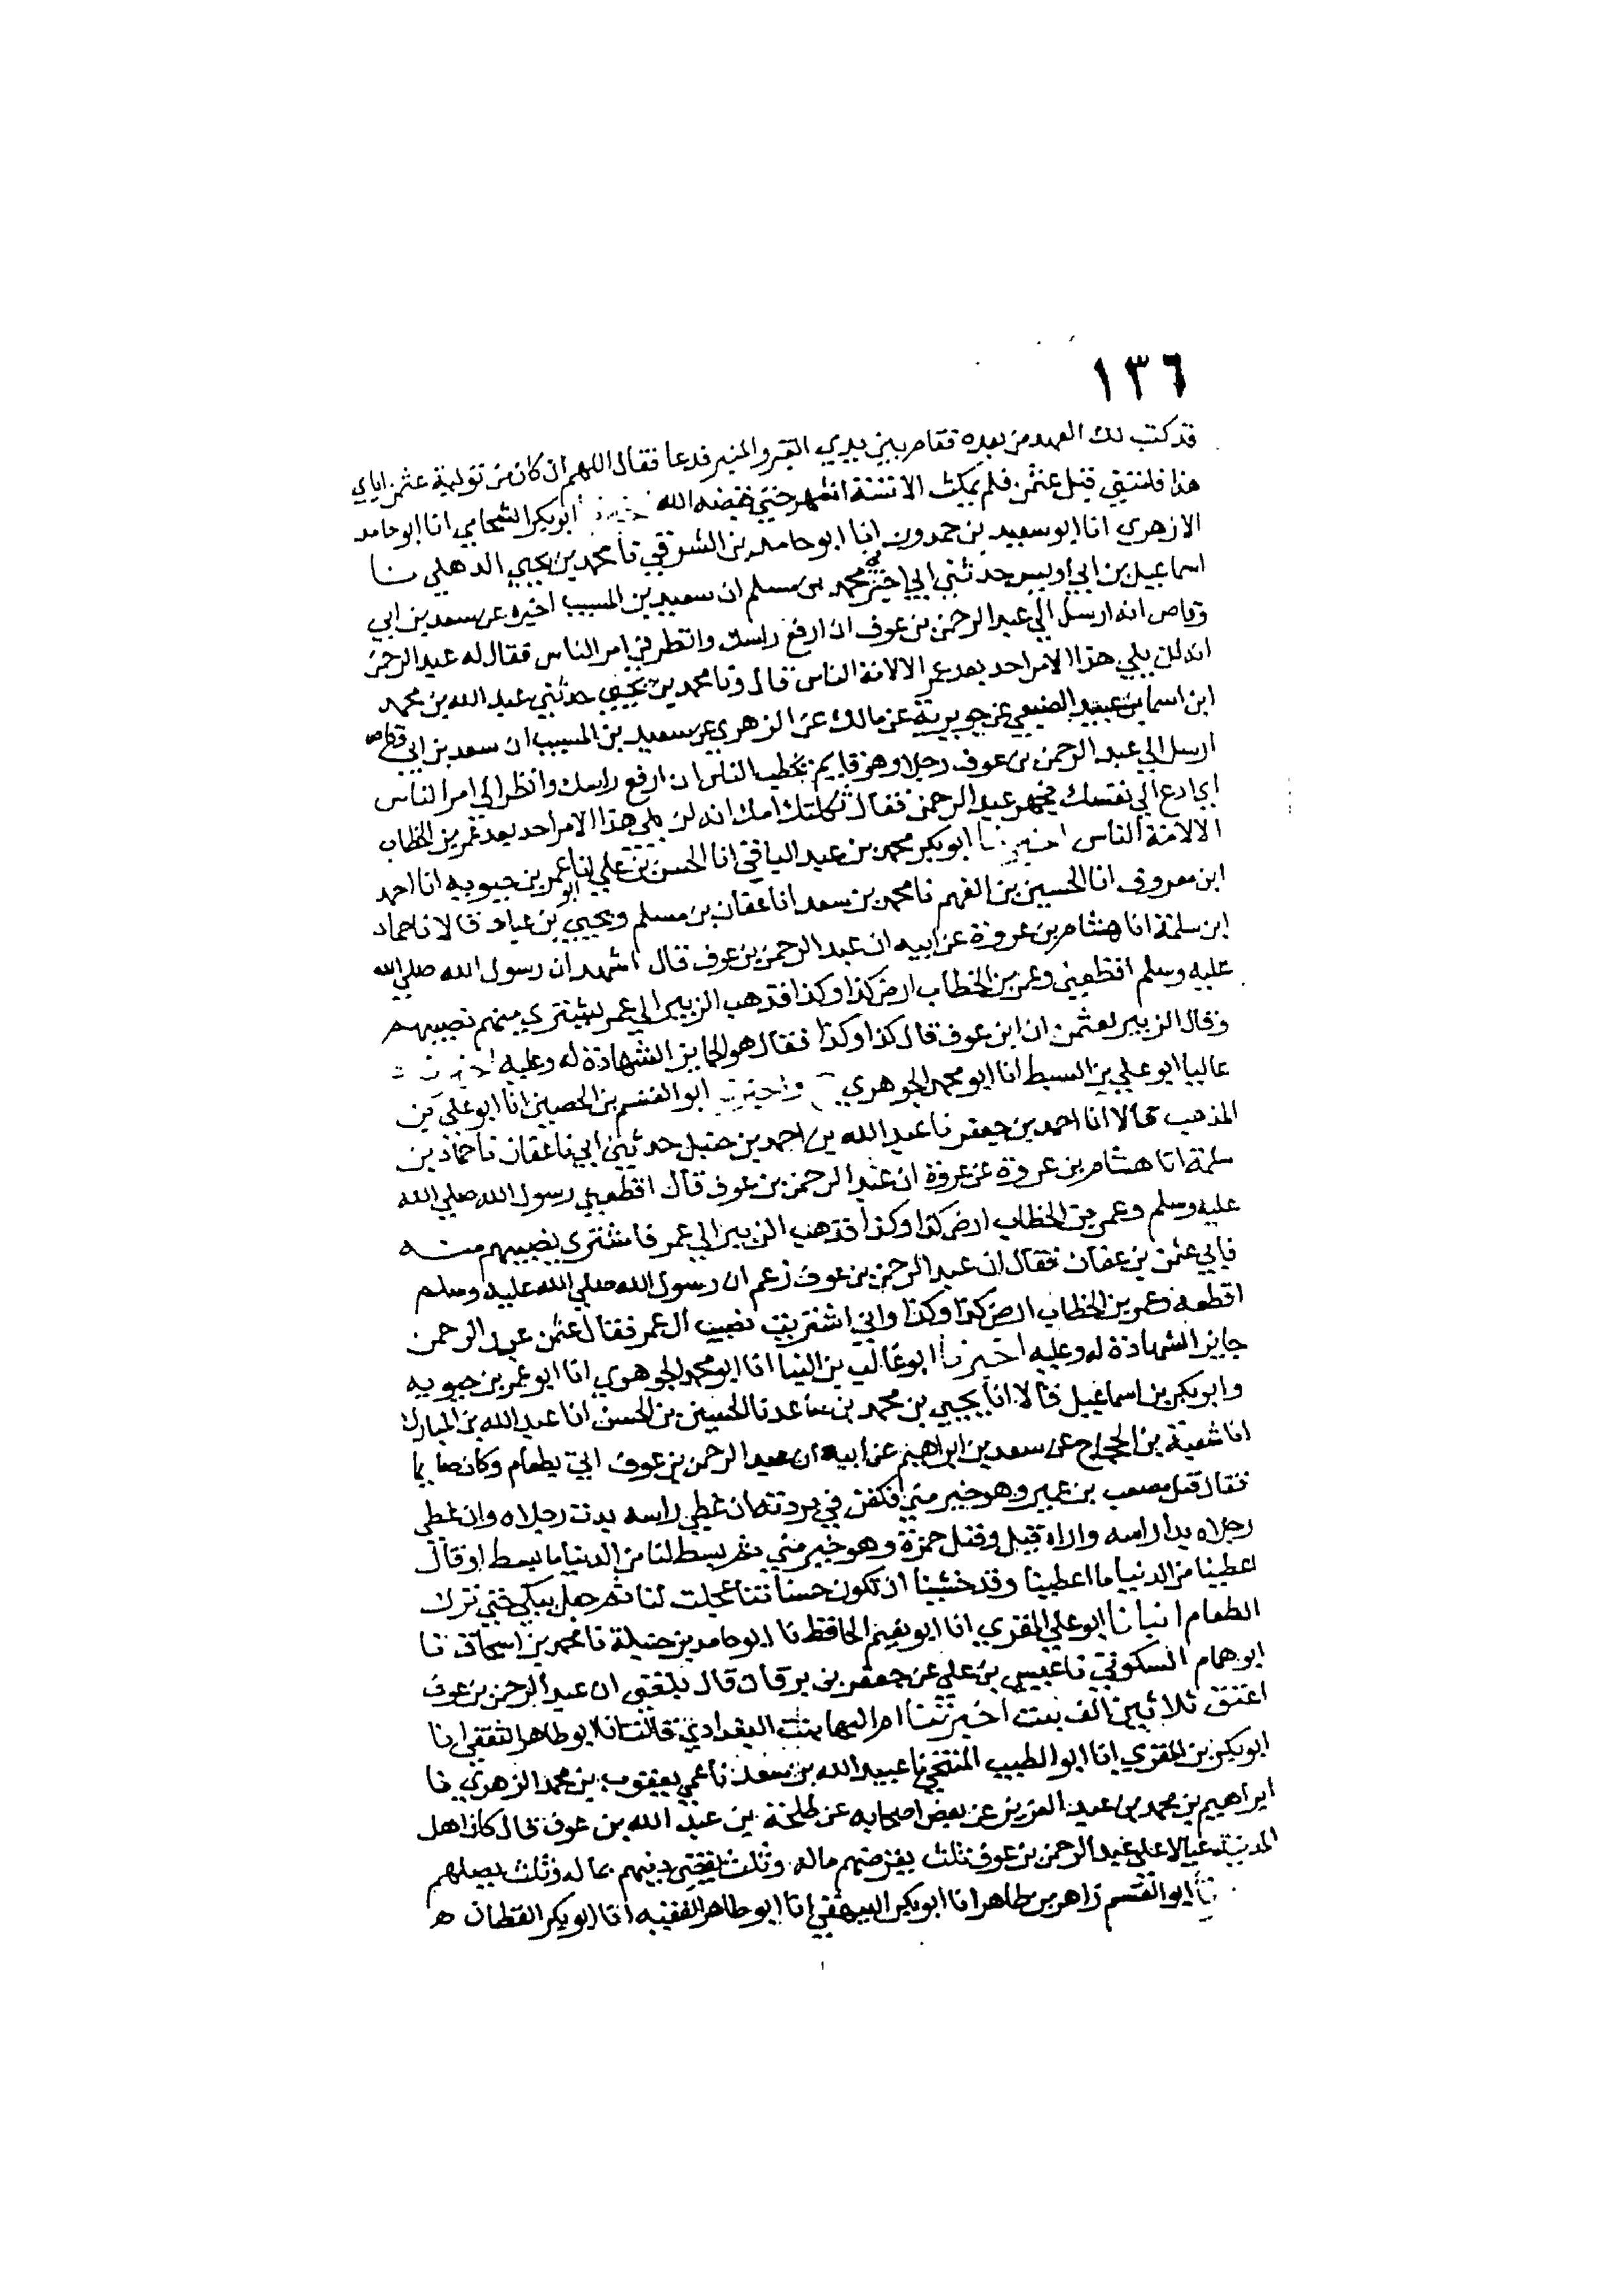 ١٣٦
قد كتب لك العهد من بعده فقام بين يدي القبر والمنبر فدعا فقال اللهم ان كان من تولية عثمن اياي
هذا فامتني قبل عثمن فلم يمكث الا ستة اشهر حتى قبضه الله اخبرنا ابو بكر الشحامي انا ابو حامد
الازهري انا ابو سعيد بن حمدون انا ابو حامد بن الشرقي نا محمد بن يحيي الذهلي نا
اسماعيل بن ابي اويس حدثني ابي محمد بن مسلم ان سعيد بن المسيب اخبره عن سعد بن ابي
وقاص انه ارسل الي عبد الرحمن بن عوف ان ارفع راسك وانظر في امر الناس فقال له عبد الرحمن
انه لن يلي هذا الامر احد بعد عمر الا لامة الناس قال ونا محمد بن يحيي حدثني عبد الله بن محمد
ابن اسما بن عبيد الضبعي عن جويرية عن مالك عن الزهري عن سعيد بن المسيب ان سعد بن ابي وقاص
ارسل الي عبد الرحمن بن عوف رجلا وهو قايم يخطب الناس ان ارفع راسك وانظر الي امر الناس
اي ادع الي نفسك عبد الرحمن فقال ثكلتك امك انه لن يلي هذا الامر احد بعد عمر بن الخطاب
الا لامة الناس اخبرنا ابو بكر محمد بن عبد الباقي انا الحسن بن علي انا ابو عمر بن حيويه انا احمد
ابن معروف انا الحسين بن الفهم نا محمد بن سعد انا عفان بن مسلم ويحيي بن عباد قالا نا حماد
ابن سلمة انا هشام بن عروة عن ابيه ان عبد الرحمن بن عوف قال اشهد ان رسول الله صلي الله
عليه وسلم اقطعني وعمر بن الخطاب ارض كذا وكذا فذهب الزبير الي عمر يشتري منهم نصيبهم
وقال الزبير لعثمن ان ابن عوف قال كذا وكذا فقال هو الجايز الشهادة له وعليه اخبرنا
عاليا ابو علي بن السبط انا ابو محمد الجوهري ح واخبرنا ابو القسم بن الحصين انا ابو علي بن
المذهب قالا انا احمد بن جعفر نا عبد الله بن احمد بن حنبل حدثني ابي نا عفان نا حماد بن
سلمة انا هشام بن عروة عن عروة ان عبد الرحمن بن عوف قال اقطعني رسول الله صلي الله
عليه وسلم وعمر بن الخطاب ارض كذا وكذا فذهب الزبير الي عمر فاشتري نصيبهم منه
فاتي عثمن بن عفان فقال ان عبد الرحمن بن عوف زعم ان رسول الله صلي الله عليه وسلم
اقطعه وعمر بن الخطاب ارض كذا وكذا واني اشتريت نصيب ال عمر فقال عثمن عبد الرحمن
جايز الشهادة له وعليه اخبرنا ابو غالب بن البنا انا ابو محمد الجوهري انا ابو عمر بن حيويه
وابو بكر بن اسماعيل قالا انا يحيي بن محمد بن صاعد نا الحسين بن الحسن انا عبد الله بن المبارك
انا شعبة بن الحجاج عن سعد بن ابراهيم عن ابيه ان عبد الرحمن بن عوف اتي بطعام وكان صايما
فقال قتل مصعب بن عمير وهو خير مني فكفن في بردته ان غطي راسه بدت رجلاه وان غطي
رجلاه بدا راسه واراه قال وقتل حمزة وهو خير مني ثم بسط لنا من الدنيا ما بسط او قال
اعطينا من الدنيا ما اعطينا وقد خشينا ان تكون حسناتنا عجلت لنا ثم جعل يبكي حتي ترك
الطعام انبانا ابو علي المقري انا ابو نعيم الحافظ نا ابو حامد بن جبلة نا محمد بن اسحاق نا
ابو همام السكوني نا بن علي عن جعفر بن برقان قال بلغني ان عبد الرحمن بن عوف
اعتق ثلاثين الف بنت اخبرتنا ام البها بنت البغدادي قالت انا ابو طاهر الثقفي انا
ابو بكر بن المقري انا ابو الطيب المنبجي نا عبيد الله بن سعد نا عمي يعقوب بن محمد الزهري نا
ابراهيم بن محمد بن عبد العزيز عن بعض اصحابه عن طلحة بن عبد الله بن عوف قال كان اهل
المدينة عيالا علي عبد الرحمن بن عوف ثلث يقرضهم ماله وثلث يقضي دينهم بماله وثلث يصلهم
نا ابو القسم زاهر بن طاهر انا ابو بكر البيهقي انا ابو طاهر الفقيه انا ابو بكر القطان ه